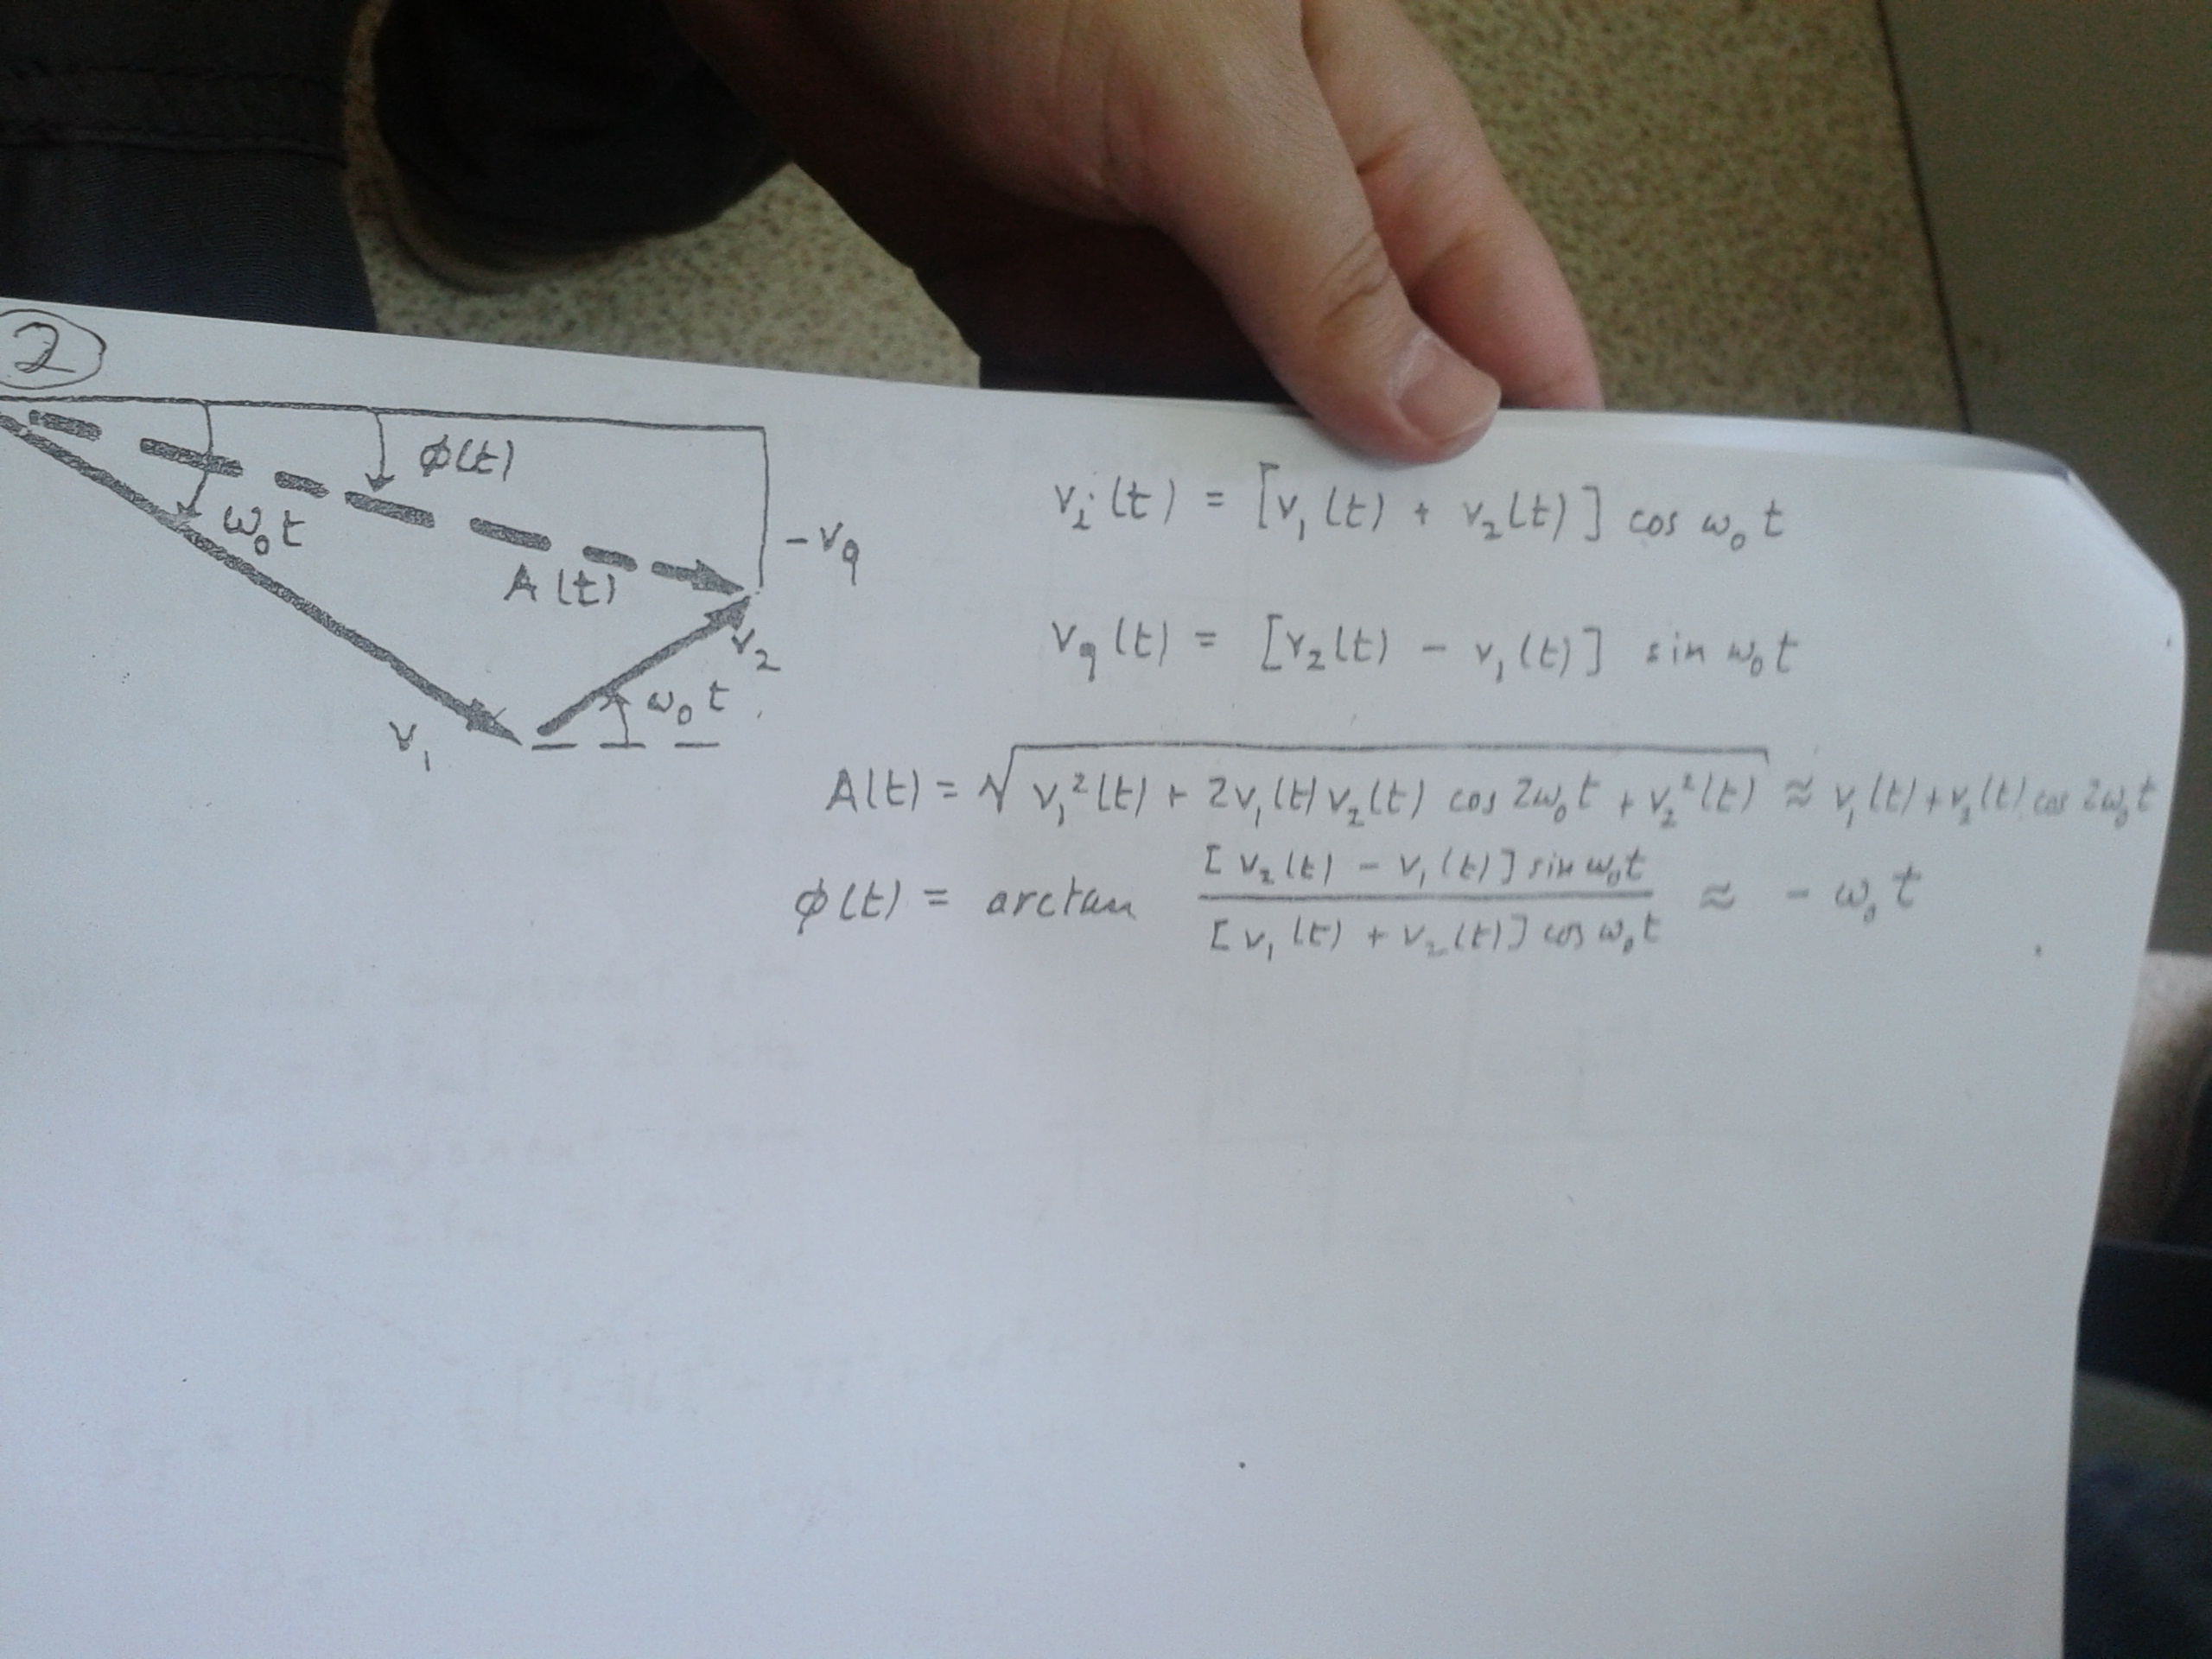 2
ϕ(t)
ω₀t
-v_q
A(t)
v₂
ω₀t
v₁
v_i(t) = [v₁(t) + v₂(t)] cos ω₀t
v_q(t) = [v₂(t) - v₁(t)] sin ω₀t
A(t) = √(v₁²(t) + 2v₁(t)v₂(t) cos 2ω₀t + v₂²(t)) ≈ v₁(t) + v₂(t) cos 2ω₀t
ϕ(t) = arctan [v₂(t) - v₁(t)] sin ω₀t / [v₁(t) + v₂(t)] cos ω₀t ≈ -ω₀t